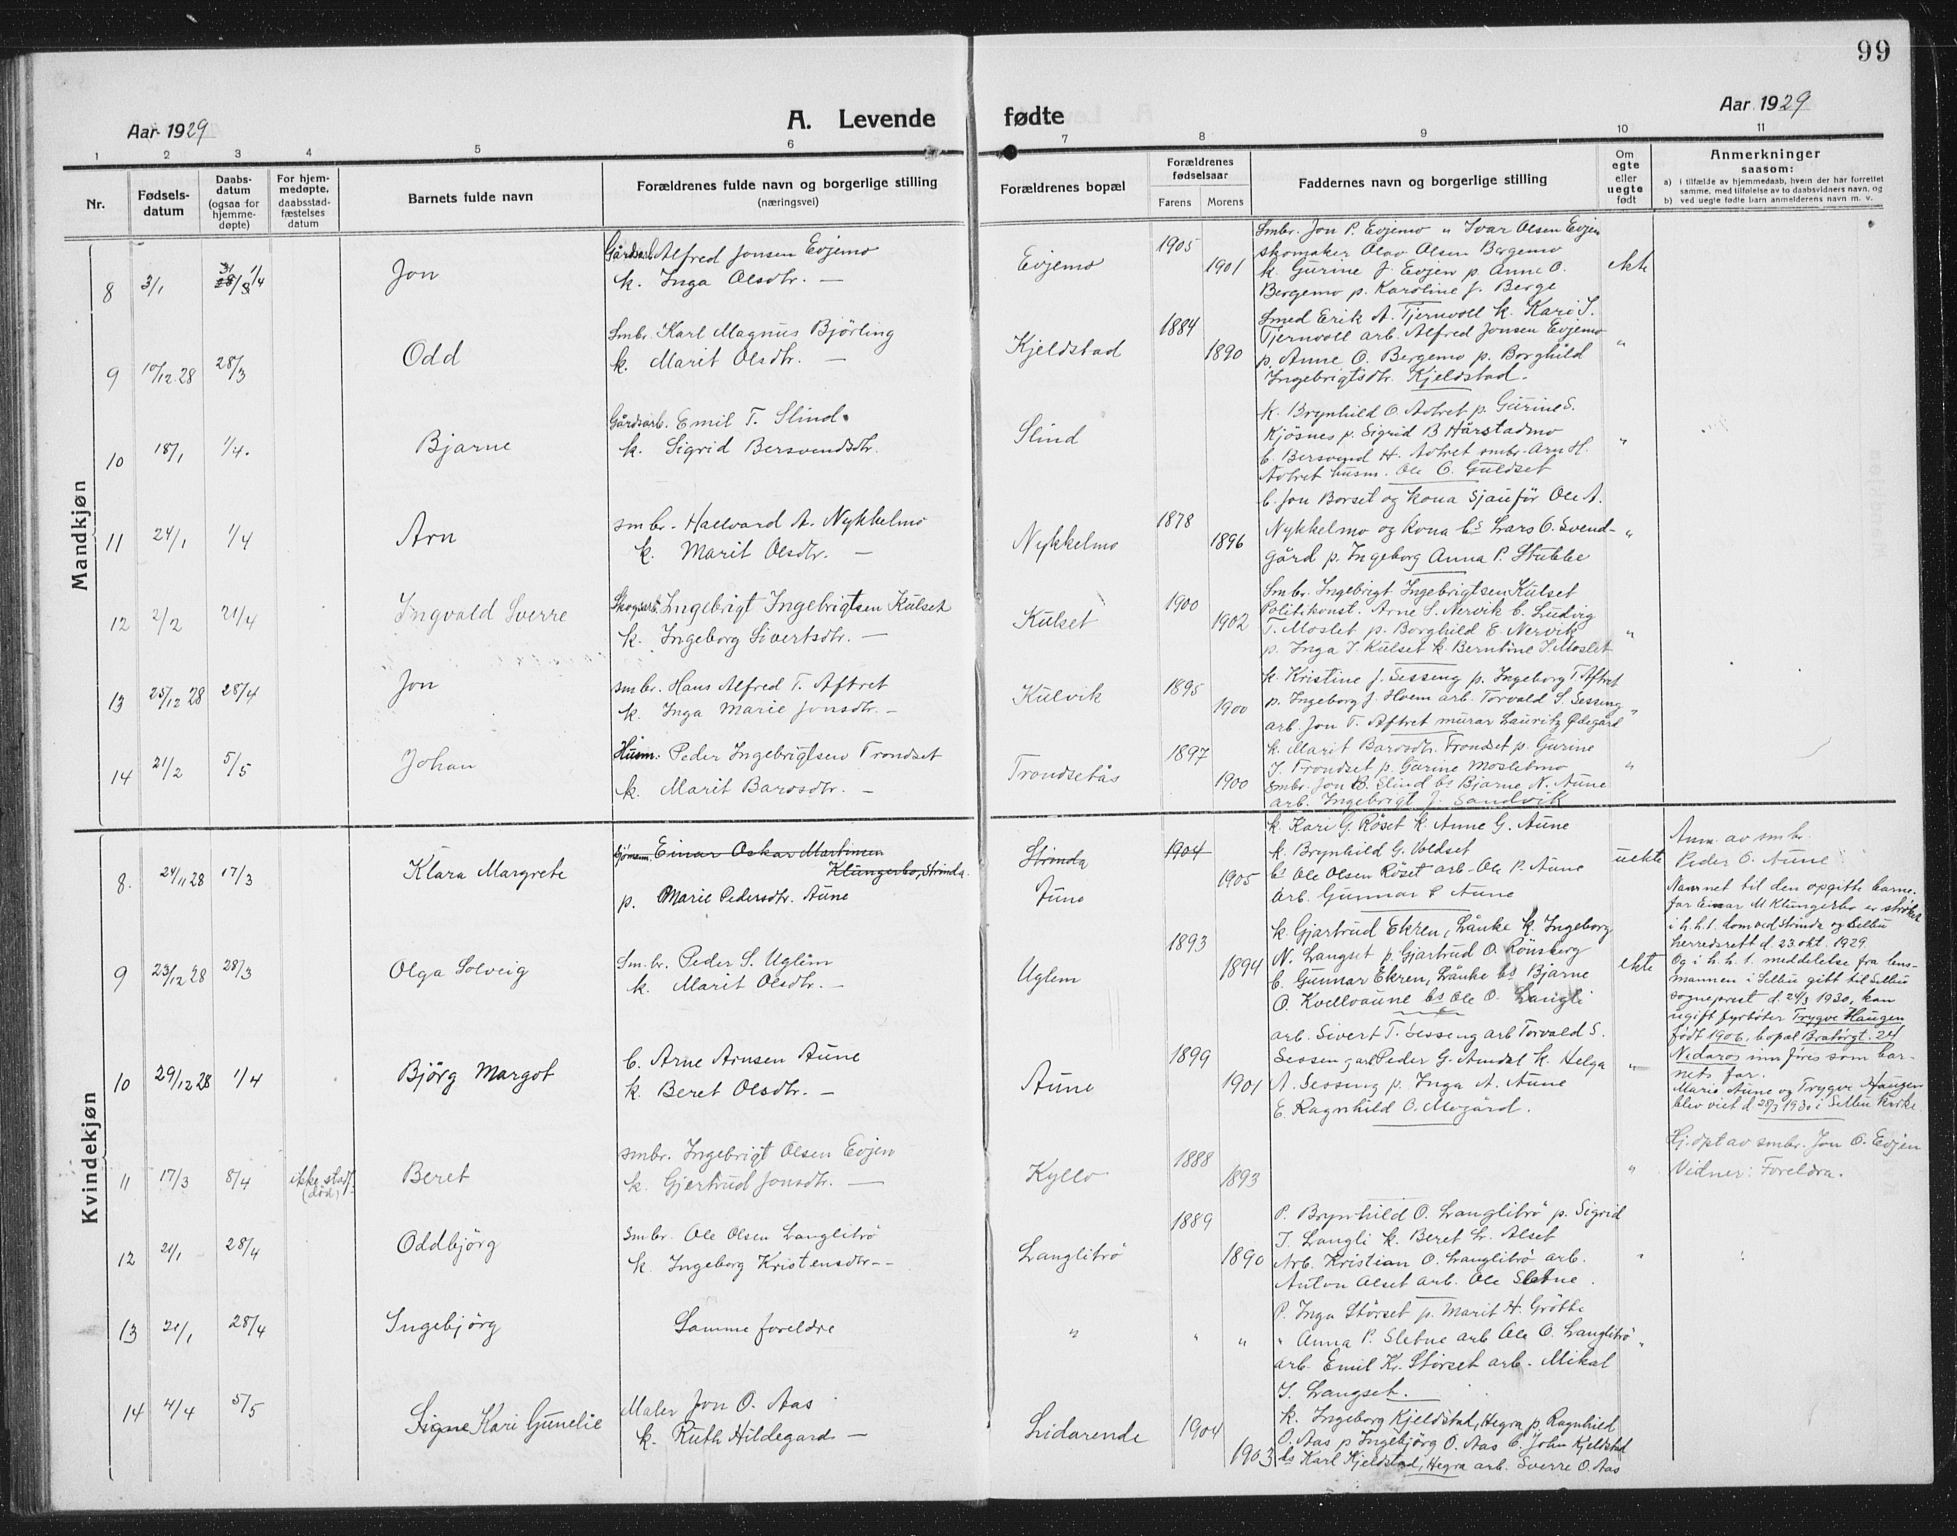 99
Aar 1929
A. Levende
fødte
Aar 1929
1 2 3 4 5 6 7 8 9 10 11
Nr.
Fødsels-
datum
Daabs-
datum
(ogsaa for
hjemme-
døpte)
For hjem-
medøpte,
daabsstad-
fæstelses
datum
Barnets fulde navn
Forældrenes fulde navn og borgerlige stilling
(næringsvei)
Forældrenes bopæl
Forældrenes
fødselsaar
Farens Morens
Faddernes navn og borgerlige stilling
Om
egte
eller
uegte
født
Anmerkninger
saasom:
a) i tilfælde av hjemmedaab, hvem der har forrettet
samme, med tilføielse av to daabsvidners navn, og
b) ved uegte fødte barn anmelderens navn m. v.
Mandkjøn
8 3/1 1/4 Jon
Gårdsarb. Alfred Jonsen Evjemo
k. Inga Olsdtr. —
Evjemo 1905 1901
Smbr. Jon P. Evjemo " Ivar Olsen Evjen
skomaker Olav Olsen Bergemo
k. Gurine J. Evjen p. Anne O.
Bergemo p. Karoline J. Berge
ekte
9 10/12 28 28/3 Odd
Smbr. Karl Magnus Bjørling
k. Marit Olsdtr. —
Kjeldstad 1884 1890
Smed Erik A. Tjernvoll k. Kari S.
Tjernvoll arb. Alfred Jonsen Evjemo
p. Anne O. Bergemo p. Borghild
Ingebrigtsdtr. Kjeldstad.
"
10 18/1 1/4. Bjarne
Gårdsarb. Emil T. Slind.
k. Sigrid Bersvendsdtr.
Slind
k. Brynhild O. Avtret p. Gurine S.
Kjøsnes p. Sigrid B Hårstadmo
b. Bersvend H. Avtret smbr. Arn H.
Avtret husm. Ole O. Guldset
"
11 24/1 1/4 Arn
smbr. Hallvard A. Nykkelmo
k. Marit Olsdtr. —
Nykkelmo 1878 1896
b. Jon Borset og kona Sjauför Ole A.
Nykkelmo og kona bs Lars O. Svend-
gård p. Ingeborg Anna P. Stubbe
"
12 2/2 21/4 Ingvald Sverre
Skogsarb. Ingebrigt Ingebrigtsen Kulset
k. Ingeborg Sivertsdtr. —
Kulset 1900 1902
Smbr. Ingebrigt Ingebrigtsen Kulset
Politikonst. Arne S. Nervik b. Ludvig
T. Moslet p. Borghild E. Nervik
p. Inga I. Kulset k. Berntine I Moslet
"
13 25/12 28 28/4 Jon
smbr. Hans Alfred T. Aftret
k. Inga Marie Jonsdtr. —
Kulvik 1895 1900
k. Kristine J. Sessing p. Ingeborg T Aftret
p. Ingeborg J. Hoem arb. Torvald S. Sessing
arb. Jon T. Aftret murar Lauritz Ødegård
"
14 21/2 5/5 Johan
Husm. Peder Ingebrigtsen Trondset
k. Marit Barosdtr. —
Trondsetås 1897 1900
k. Marit Barosdtr. Trondset p. Gurine
I. Trondset p. Gurine Mosletmo
Smbr Jon B. Slind bs Bjarne N. Aune
arb. Ingebrigt J. Sandvik
"
Kvindekjøn
8. 24/11 28 17/3 Klara Margrete
Einar Oskar Martinsen
Klungerbo, Strinda.
p. Marie Pedersdtr. Aune
Strinda
Aune
1904 1905
k Kari G. Røset k. Anne G. Aune
k. Brynhild G. Voldset
bs Ole Olsen Røset arb. Ole P. Aune
arb. Gunnar P Aune
uekte
Anm. av smbr.
Peder O. Aune
Navnet til den opgitte barne-
far Einar M Klungerbo er strøket
i h.h.t. dom ved Strinda og Selbu
herredsrett d. 23 okt. 1929.
Og i h.h.t. meddelelse fra lens-
mannen i Selbu gitt til Selbu
sogneprest d. 24/3 1930, kan
ugift fyrbøter Trygve Haugen
født 1906, bopæl Bratørgt. 24
Nidaros innføres som bar-
nets far.
Marie Aune og Trygve Haugen
blev viet d. 28/3 1930 i Selbu kirke.
9 23/12 28 28/3 Olga Solveig
Sm.br. Peder S. Uglem
k. Marit Olsdtr. —
Uglem 1893 1894
k Gjartrud Ekren, Lånke k. Ingeborg
N. Langset p. Gjartrud O. Rönsberg
b. Gunnar Ekren, Lånke bs Bjarne
O. Kvellvaune bs Ole O. Langli
ekte
10 29/12 28 1/4 Bjørg Margot
b. Arne Arnsen Aune
k. Beret Olsdtr. —
Aune 1899 1901
arb. Sivert T. Sessing arb Torvald S.
Sessing arb Peder G. Amdal k. Helga
A. Sessing p. Inga A. Aune
E. Ragnhild O. Mogård.
"
11 17/3 8/4 ikke stadf. (död) Beret
smbr. Ingebrigt Olsen Evjen
k. Gjertrud Jonsdtr. —
Kyllo 1888 1893
"
Hj. dpt av smbr. Jon O. Evjen
Vidner: Foreldra.
12 21/1 28/4 Oddbjörg
smbr. Ole Olsen Langlitrö
k. Ingeborg Kristensdtr. —
Langlitrö 1889 1890
P. Brynhild O. Langlitrö p. Sigrid
I. Langli k. Beret L. Alset
Arb. Kristian O. Langlitrö arb.
Anton Alset arb. Ole Sletne.
"
13 21/1 28/4 Ingebjörg
Samme foreldre
" " "
P. Inga Störset p. Marit H. Grötte
" Anna P. Sletne arb Ole O. Langlitrö
arb. Emil Kr. Störset arb. Mikal
I. Langset.
"
14 4/4 5/5 Signe Kari Gunelie
Maler Jon O. Aas
k. Ruth Hildegard —
Lidarende 1904 1903
k. Ingeborg Kjeldstad, Hegra p Ragnhild
O. Aas p Ingebjörg O. Aas b. John Kjeldstad
bs Karl Kjeldstad, Hegra arb. Sverre O. Aas